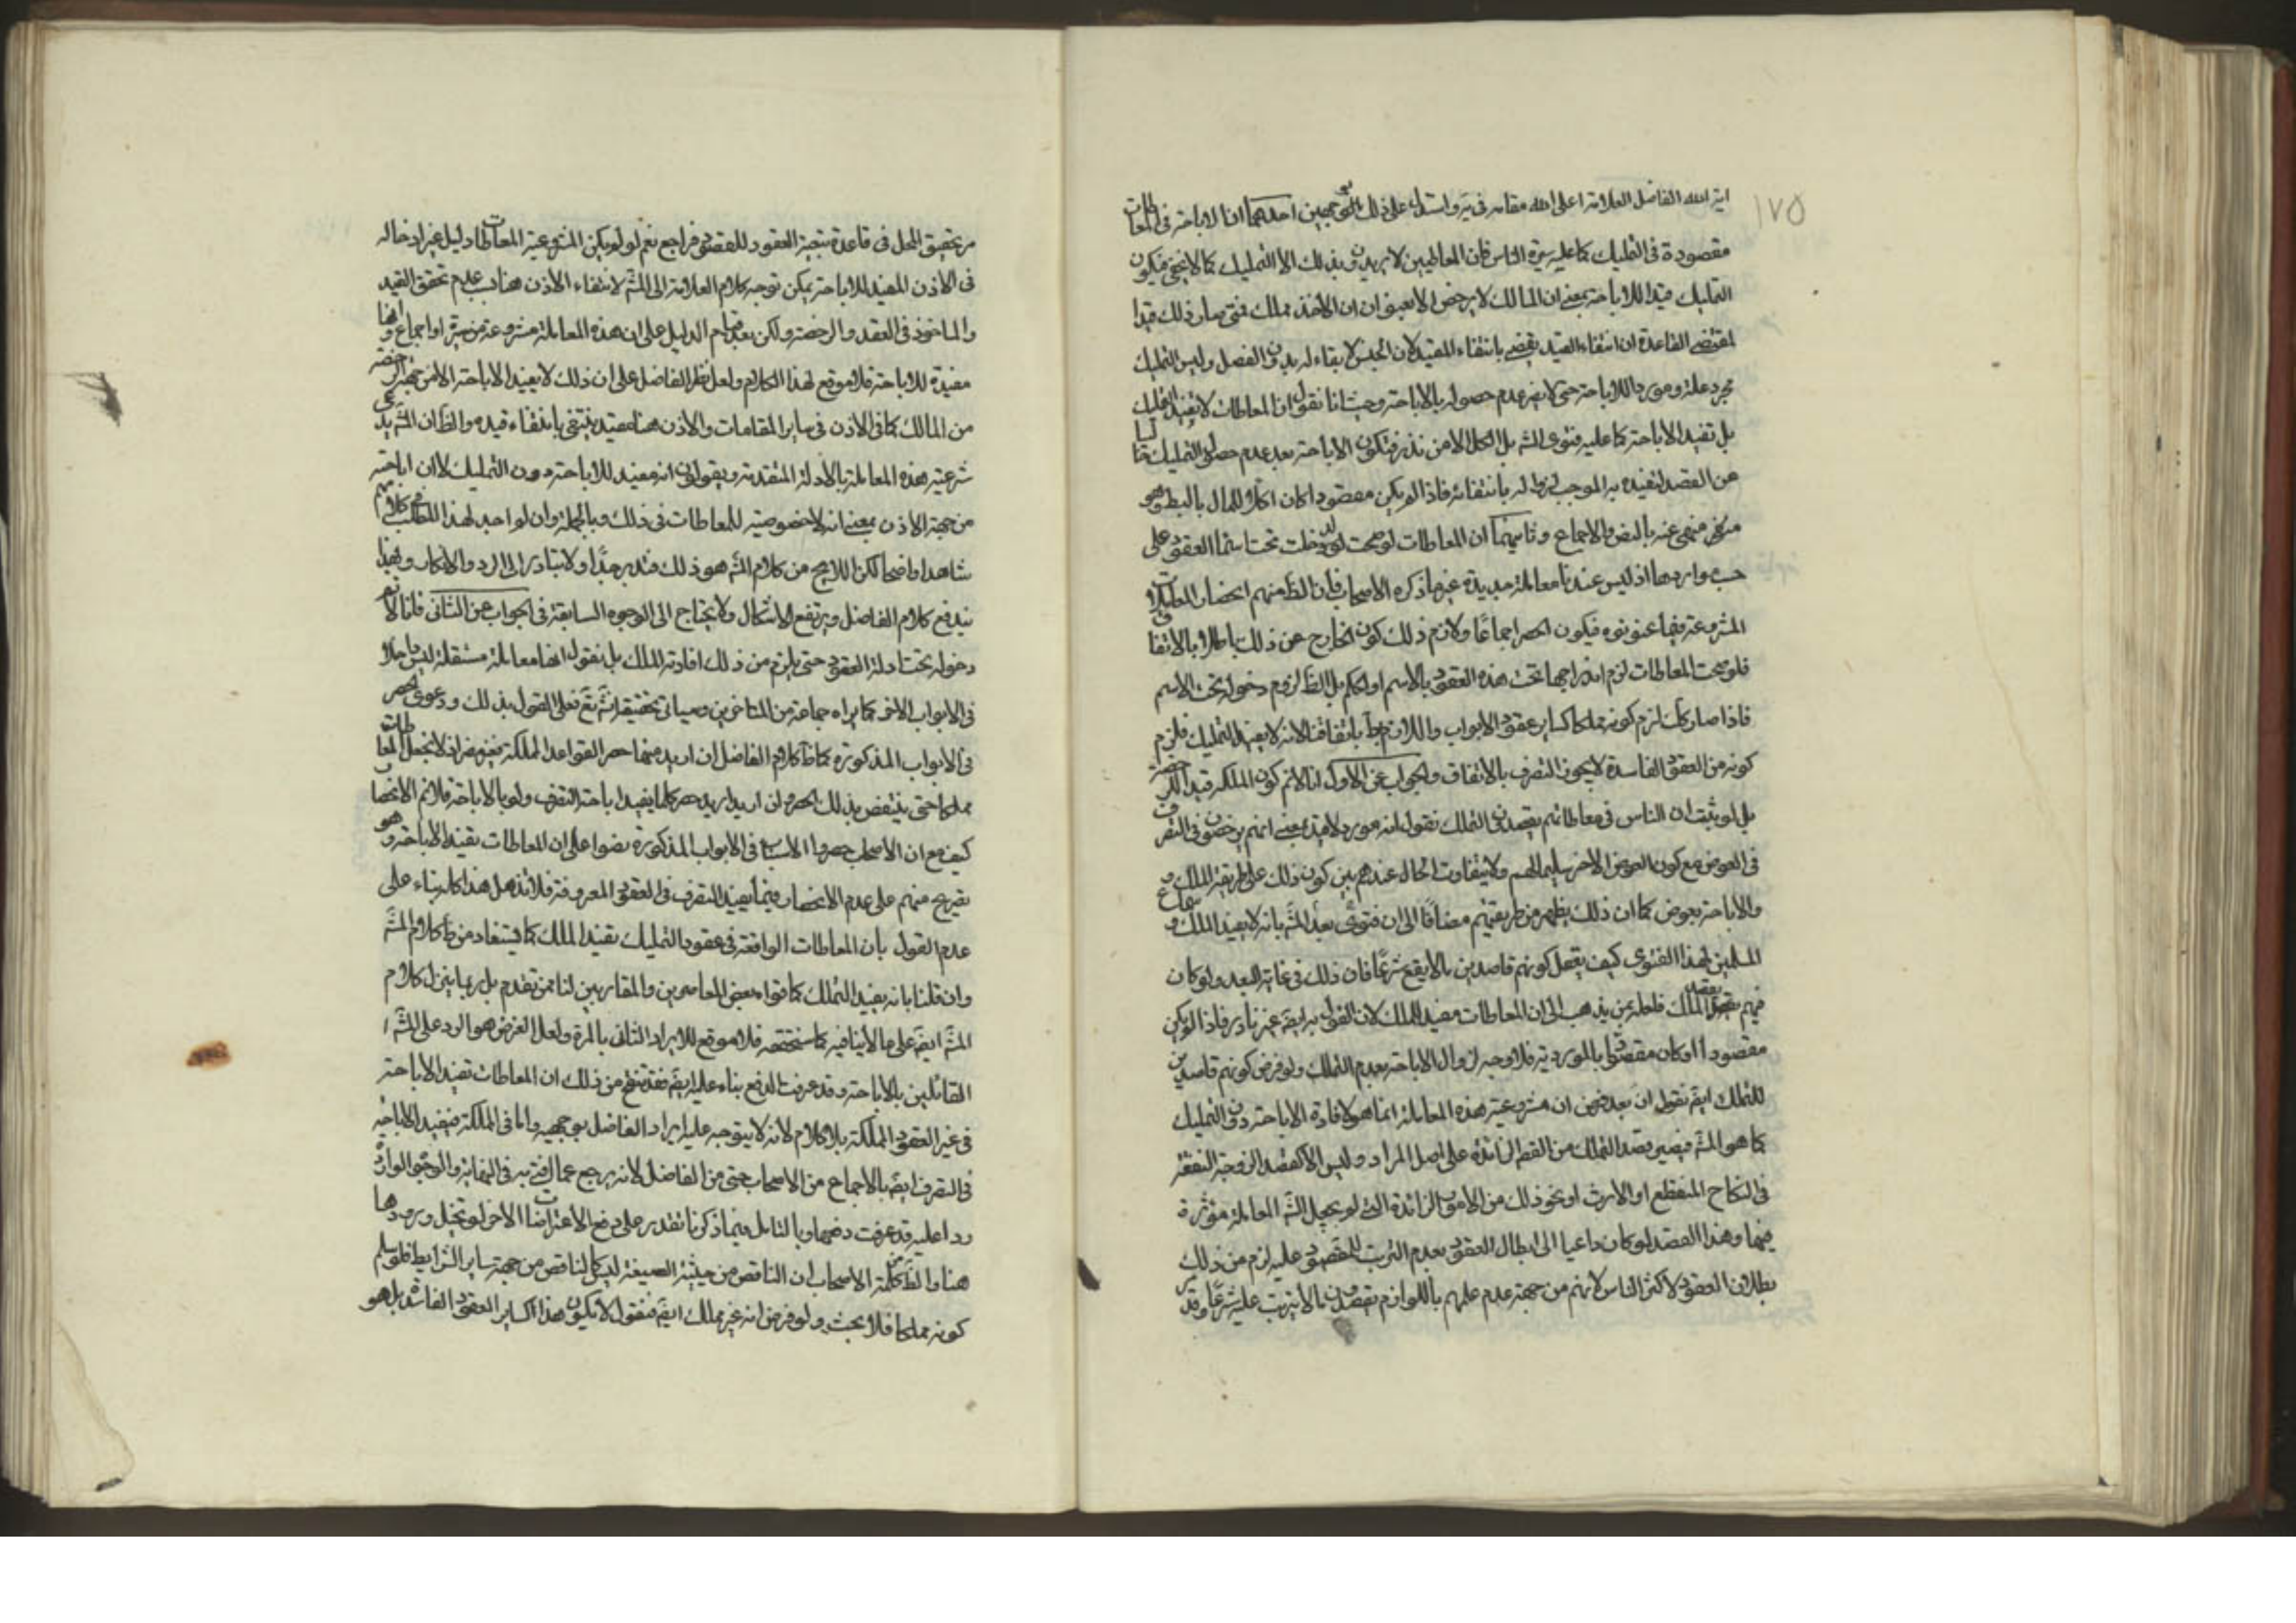 ١٧٥
اية الله الفاضل العلامة اعلى الله مقامه في ير واستدل على ذلك بوجهين احدهما ان الاباحة في المعاطات
مقصودة في التمليك كما عليه سيرة الناس فان المعاطيين لا يريدون بذلك الا التمليك كما لا يخفى فيكون
التمليك قيدا للاباحة بمعنى ان المالك لا يرخص الا بعنوان ان الاخذ مملك فمتى صار ذلك قيدا
لمقتضى القاعدة ان انتفاء القيد يقضي بانتفاء المقيد لان الجنس لا بقاء له بدون الفصل وليس التمليك
مجرد علة ومورد للاباحة حتى لا يضر عدم حصوله بالاباحة وحيث انا نقول ان المعاطات لا يفيد التمليك
بل تفيد الاباحة كما عليه فتوى المش بل الكل الا من نذر فتكون الاباحة بعد عدم حصول التمليك
عن القصد لتقيده به الموجب لزواله بانتفائه فاذا لم يكن مقصودا كان اكلا للمال بالباطل وهو
منهى عنه بالنص والاجماع وثانيهما ان المعاطات لو صحت لدخلت تحت اسم العقود على
حسب مواردها اذ ليس عندنا معاملة جديدة غير ما ذكره الاصحاب فان الظ منهم انحصار المعاملات
المشروعة فيما عنونوه فيكون الحصر اجماعا ولازم ذلك كون الخارج عن ذلك باطلا بالاتفاق
فلو صحت المعاطات لزم اندراجها تحت هذه العقود بالاسم او الحكم بل الظ لزوم دخوله تحت الاسم
فاذا صار كك لزم كونه مملكا كساير عقود الابواب واللازم بط باتفاقنا لانه لا يفيد التمليك فلزم
كونه من العقود الفاسدة لا يجوز التصرف بالاتفاق والجواب عن الاول انا لانم كون الملكة قيد الرخصة
بل لو ثبت ان الناس في معاطاتهم يقصدون التملك نقول انه مورد لا قيد بمعنى انهم يرخصون في التصرف
في العوض مع كون العوض الاخر سليما لهم ولا يتفاوت الحال عندهم بين كون ذلك على طريقة الملك
والاباحة بعوض كما ان ذلك يظهر من طريقتهم مضافا الى ان فتوى بعد المش بانه لا يفيد الملك و
المسلمين لهذا الفتوى كيف يعقل كونهم قاصدين بما لا يقع شرعا فان ذلك في غاية البعد ولو كان
فيهم يقصد الملك فلعله ممن يذهب الى ان المعاطات مفيد للملك لان القول به ايض غير نادر فاذا لم يكن
مقصودا او كان مقصودا بالموردية فلا وجه لزوال الاباحة بعدم التملك ولو فرض كونهم قاصدين
للتملك ايض نقول ان بعد فرض ان مشروعية هذه المعاملة انما هو لافادة الاباحة دون التمليك
كما هو المش فيصير قصد التملك من القصد الزائدة على اصل المراد وليس الا كقصد الزوجة النفقة
في النكاح المنقطع او الارث او نحو ذلك من الامور الزائدة التي لم يجعل الش المعاملة مؤثرة
فيها وهذا القصد لو كان داعيا الى ابطال العقود بعدم الترتب للمقصود عليه لزم من ذلك
بطلان العقود لاكثر الناس لانهم من جهة عدم علمهم باللوازم يقصدون ما لا يترتب عليه شرعا وقد
مر تحقيق المحل في قاعدة تبعية العقود للقصود فراجع نعم لو لم يكن المشروعية المعاطات دليل غير ادخاله
في الاذن المفيد للاباحة يمكن توجه كلام العلامة الى المش لانتفاء الاذن هنا بسبب عدم تحقق القيد
والماخوذ في العقد والرخصة ولكن بعد قيام الدليل على ان هذه المعاملة مشروعة من سيرة او اجماع وانها
مفيدة للاباحة فلا موقع لهذا الكلام ولعل نظر الفاضل على ان ذلك لا يفيد الاباحة الا من جهة الرخصة
من المالك كما في الاذن في ساير المقامات والاذن هنا مقيد ينتفى بانتفاء قيده والظ ان المش يدعى
شرعية هذه المعاملة بالادلة المتقدمة ويقولون انه مفيد للاباحة دون التمليك لا ان اباحته
من جهة الاذن بمعنى انه لا خصوصية للمعاطات في ذلك وبالجملة وان لم اجد لهذا المطلب في كلامهم
شاهدا واضحا لكن اللايح من كلام المش هو ذلك فتدبر جدا ولا تبادر الى الرد والانكار وبهذا
يندفع كلام الفاضل ويرتفع الاشكال ولا يحتاج الى الوجوه السابقة في الجواب عن الثاني فانا لانم
دخوله تحت ادلة العقود حتى يلزم من ذلك افادته للملك بل نقول انها معاملة مستقلة ليس داخلا
في الابواب الاخر كما يراه جماعة من المتاخرين وسياتي تحقيقه انش تع فعلى القول بذلك ودعوى الحصر
في الابواب المذكورة كما ظ كلام الفاضل ان اريد منها حصر القواعد المملكة بغير ضر انا لا نجعل المعاطات
مملكا حتى ينتقض بذلك الحصر وان اريد اريد حصر كلما يفيد اباحة التصرف ولو بالاباحة فلانم الانحصار
كيف مع ان الاصحاب حصروا الاسباب في الابواب المذكورة نصوا على ان المعاطات يفيد الاباحة وهو
تصريح منهم على عدم الانحصار فيما يفيد التصرف في العقود المعروفة فلا تذهل هذا كله بناء على
عدم القول بان المعاطات الواقعة في عقود التمليك يفيد الملك كما يستفاد من ظ كلام المش
وان قلنا بانه يفيد التملك كما قواه بعض المعاصرين والمقاربين لنا ممن تقدم بل ربما ينزل كلام
المش ايض على ما لا ينافيه كما سنحققه فلا موقع للايراد الثاني بالمرة ولعل الغرض هو الرد على المش
القائلين بالاباحة وقد عرفت الدفع بناء عليه ايض فقد تنقح من ذلك ان المعاطات تفيد الاباحة
في غير العقود المملكة بلا كلام لانه لا يتوجه عليه ايراد الفاضل بوجهيه واما في المملكة فيفيد الاباحة
في التصرف ايض بالاجماع من الاصحاب حتى من الفاضل لانه رجع عما افتى به في النهاية والوجوه الواردة
ردا عليه قد عرفت دفعها وبالتامل فيما ذكرنا تقدر على دفع الاعتراضات الاخر لو تخيل ورودها
هنا والظ كلمة الاصحاب ان الناقص من حيثية الصيغة ليس كالناقص من جهة ساير الشرايط فلو سلم
كونه مملكا فلا بحث ولو فرض انه غير مملك ايض فنقول لا يكون هذا كساير العقود الفاسدة بل هو